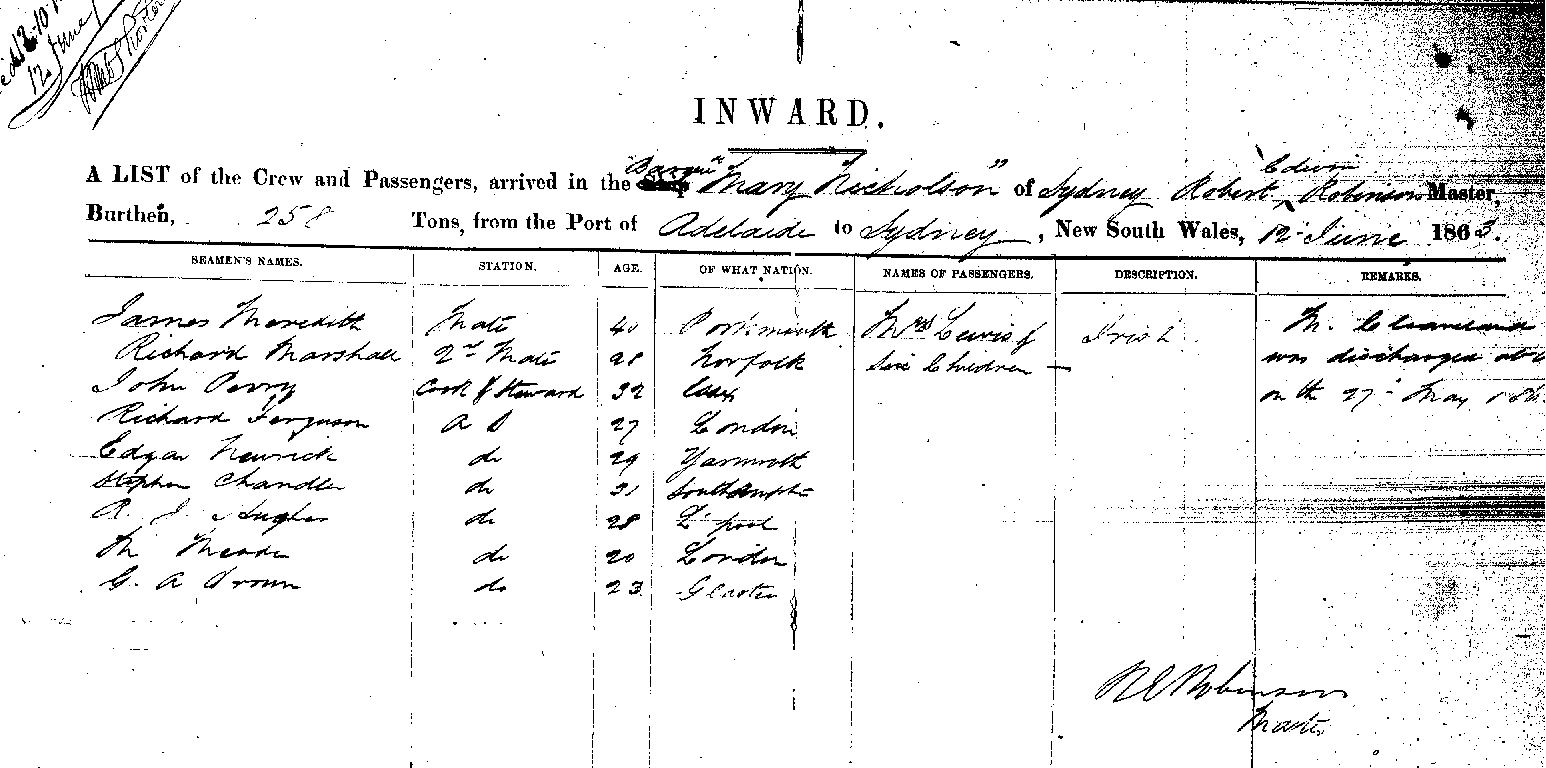 12 June
INWARD.
A LIST of the Crew and Passengers, arrived in the Ship "Mary Nicholson" of Sydney Robert Edwin Robinson Master,
Burthen, 258 Tons, from the Port of Adelaide to Sydney, New South Wales, 12 June 1863.
SEAMEN'S NAMES. STATION. AGE. OF WHAT NATION. NAMES OF PASSENGERS. DESCRIPTION. REMARKS.
James Meredith Mate 40 Portsmouth Mrs Lewis & Irish M. Cleaveland
Richard Marshall 2nd Mate 28 Norfolk Six Children — was discharged
John Perry Cook & Steward 32 Essex on the 27 May
Richard Ferguson A B 27 London
Edgar Newrick do 29 Yarmouth
Stephen Chandler do 31 Southampton
R. J. Hughes do 28 L'pool
M Meade do 20 London
G. A Brown do 23
R E Robinson
Master